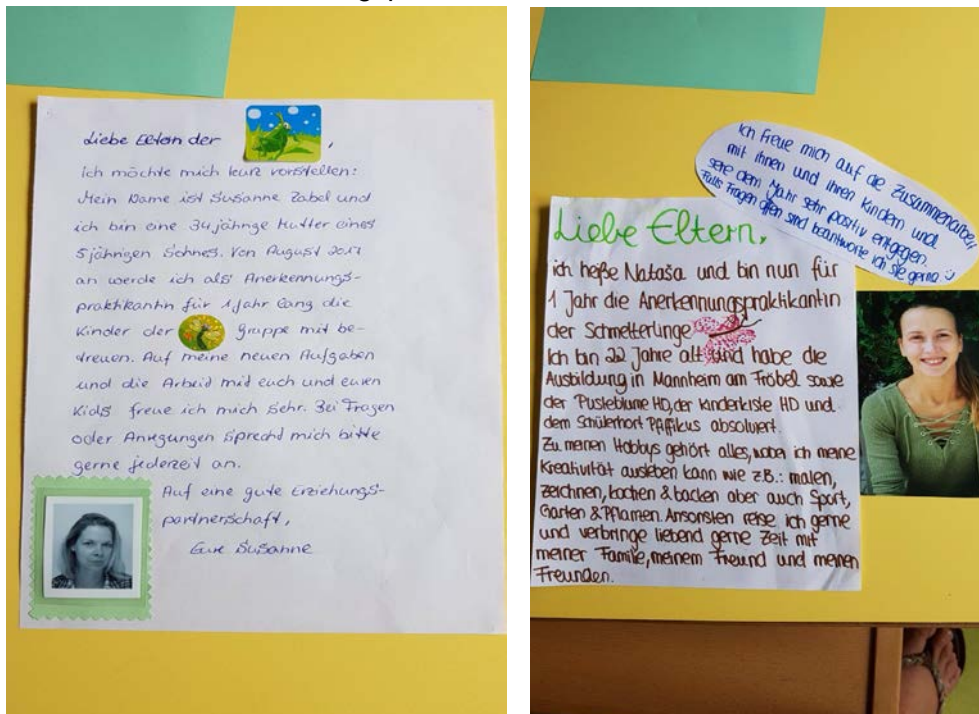 Liebe Eltern der ,
ich möchte mich kurz vorstellen:
Mein Name ist Susanne Zabel und
ich bin eine 34 jährige Mutter eines
5 jährigen Sohnes. Von August 2017
an werde ich als Anerkennungs-
praktikantin für 1 Jahr lang die
Kinder der Gruppe mit be-
treuen. Auf meine neuen Aufgaben
und die Arbeit mit euch und euren
Kids freue ich mich sehr. Bei Fragen
oder Anregungen sprecht mich bitte
gerne jederzeit an.
Auf eine gute Erziehungs-
partnerschaft,
Eure Susanne
Ich freue mich auf die Zusammenarbeit
mit ihnen und ihren Kindern und
sehe dem Jahr sehr positiv entgegen.
Falls Fragen offen sind beantworte ich sie gerne :)
Liebe Eltern,
ich heiße Nataša und bin nun für
1 Jahr die Anerkennungspraktikantin
der Schmetterlinge
Ich bin 22 Jahre alt und habe die
Ausbildung in Mannheim am Fröbel sowie
der Pusteblume HD, der Kinderkiste HD und
dem Schülerhort Pfiffikus absolviert.
Zu meinen Hobbys gehört alles, wobei ich meine
Kreativität ausleben kann wie z.B.: malen,
zeichnen, kochen & backen aber auch Sport,
Garten & Pflanzen. Ansonsten reise ich gerne
und verbringe liebend gerne Zeit mit
meiner Familie, meinem Freund und meinen
Freunden.